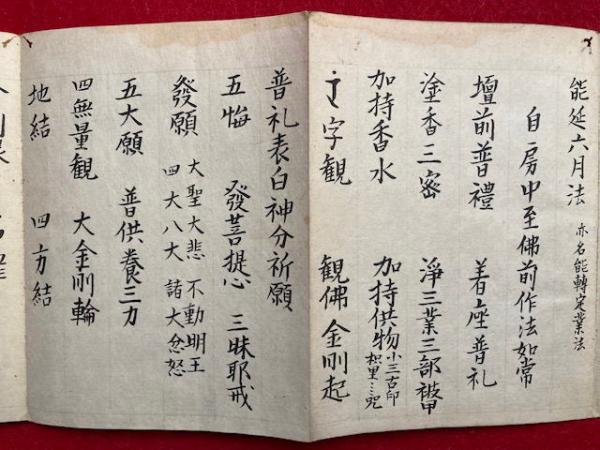 能延六月法 亦名能轉定業法
自房中至佛前作法如常
壇前普禮 着座普礼
塗香三密 淨三業三部被甲
加持香水 加持供物 小三古印 枳里〻咒
字観 観佛金剛起
普礼表白神分祈願
五悔 發菩提心 三昧耶戒
發願 大聖大悲 不動明王
四大八大 諸大忿怒
五大願 普供養三力
四無量観 大金剛輪
地結 四方結